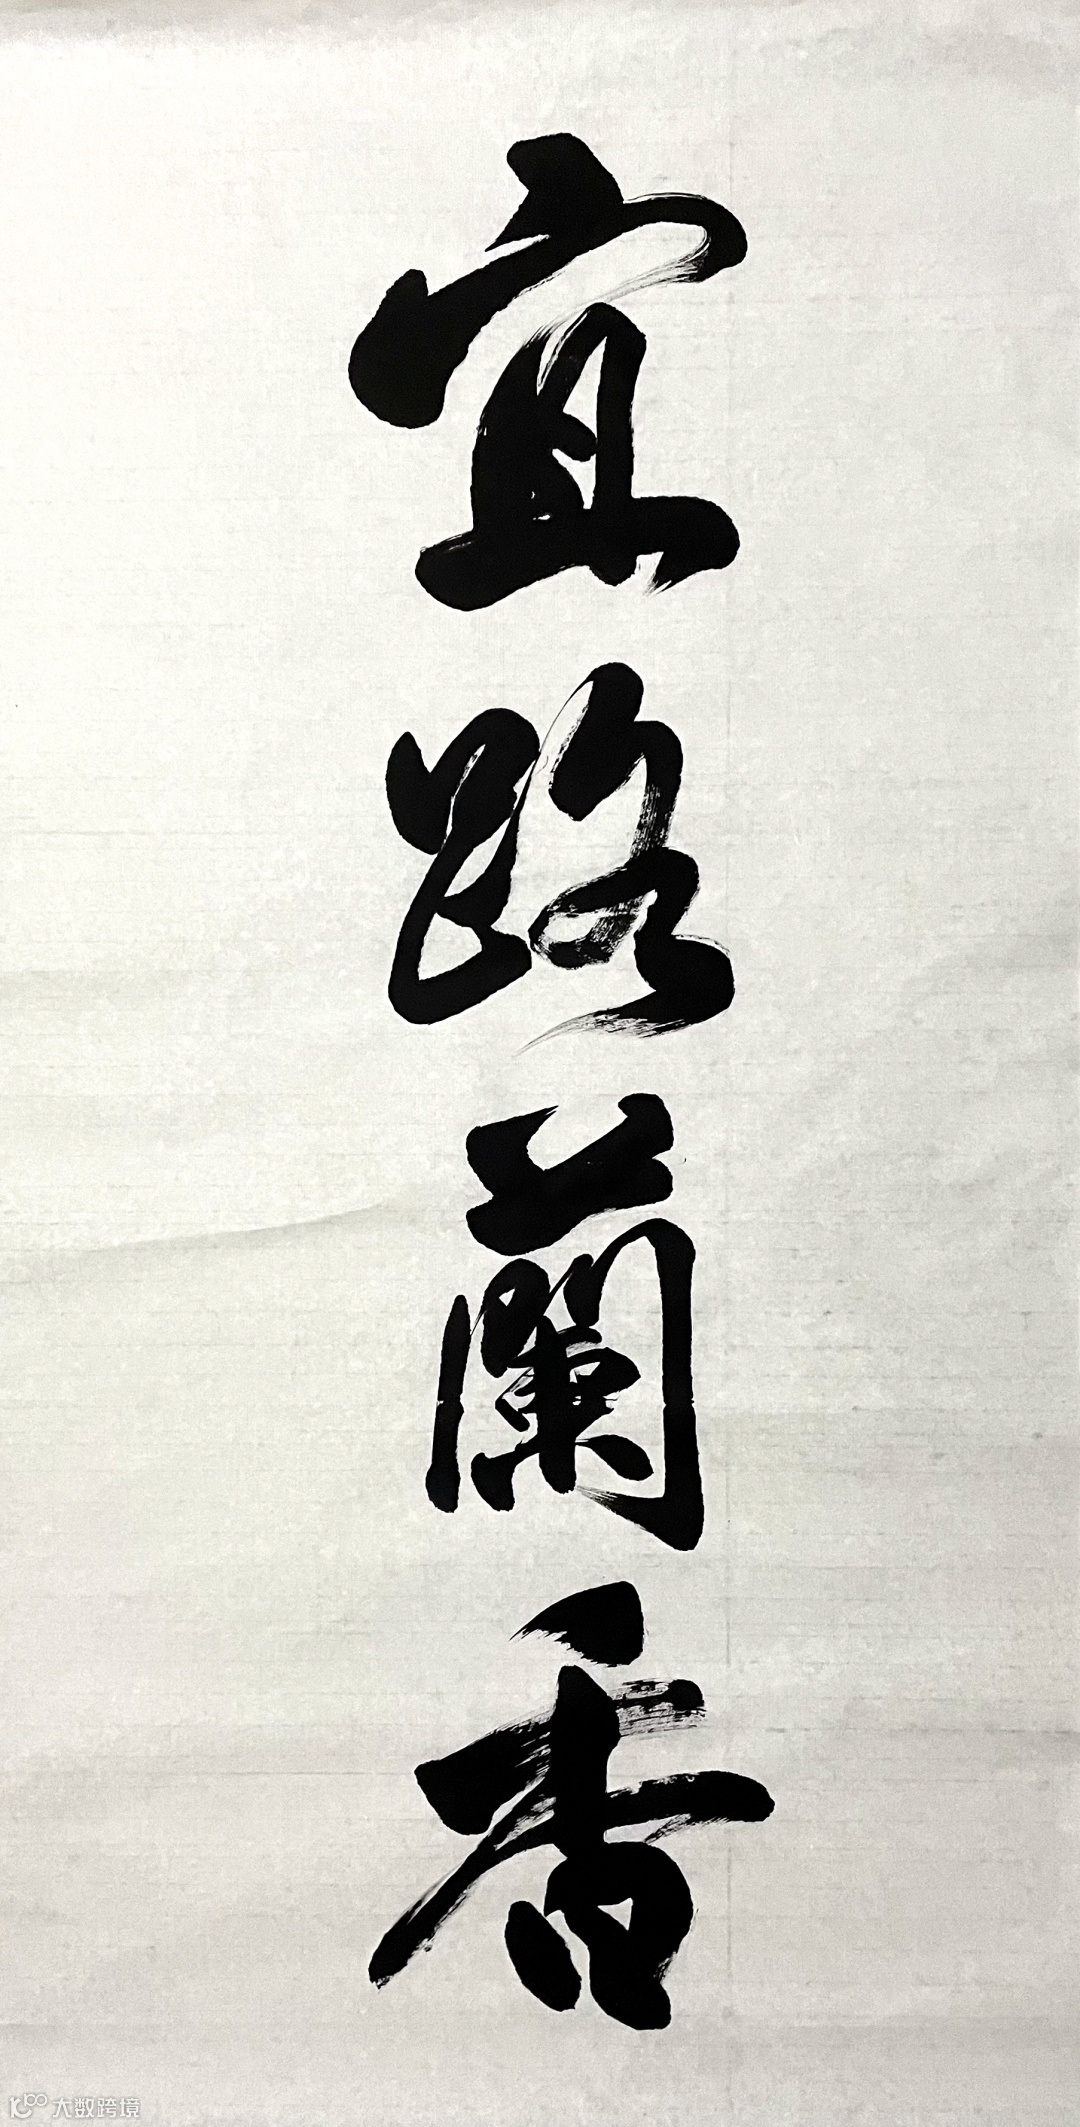 宜路蘭香
大数跨境